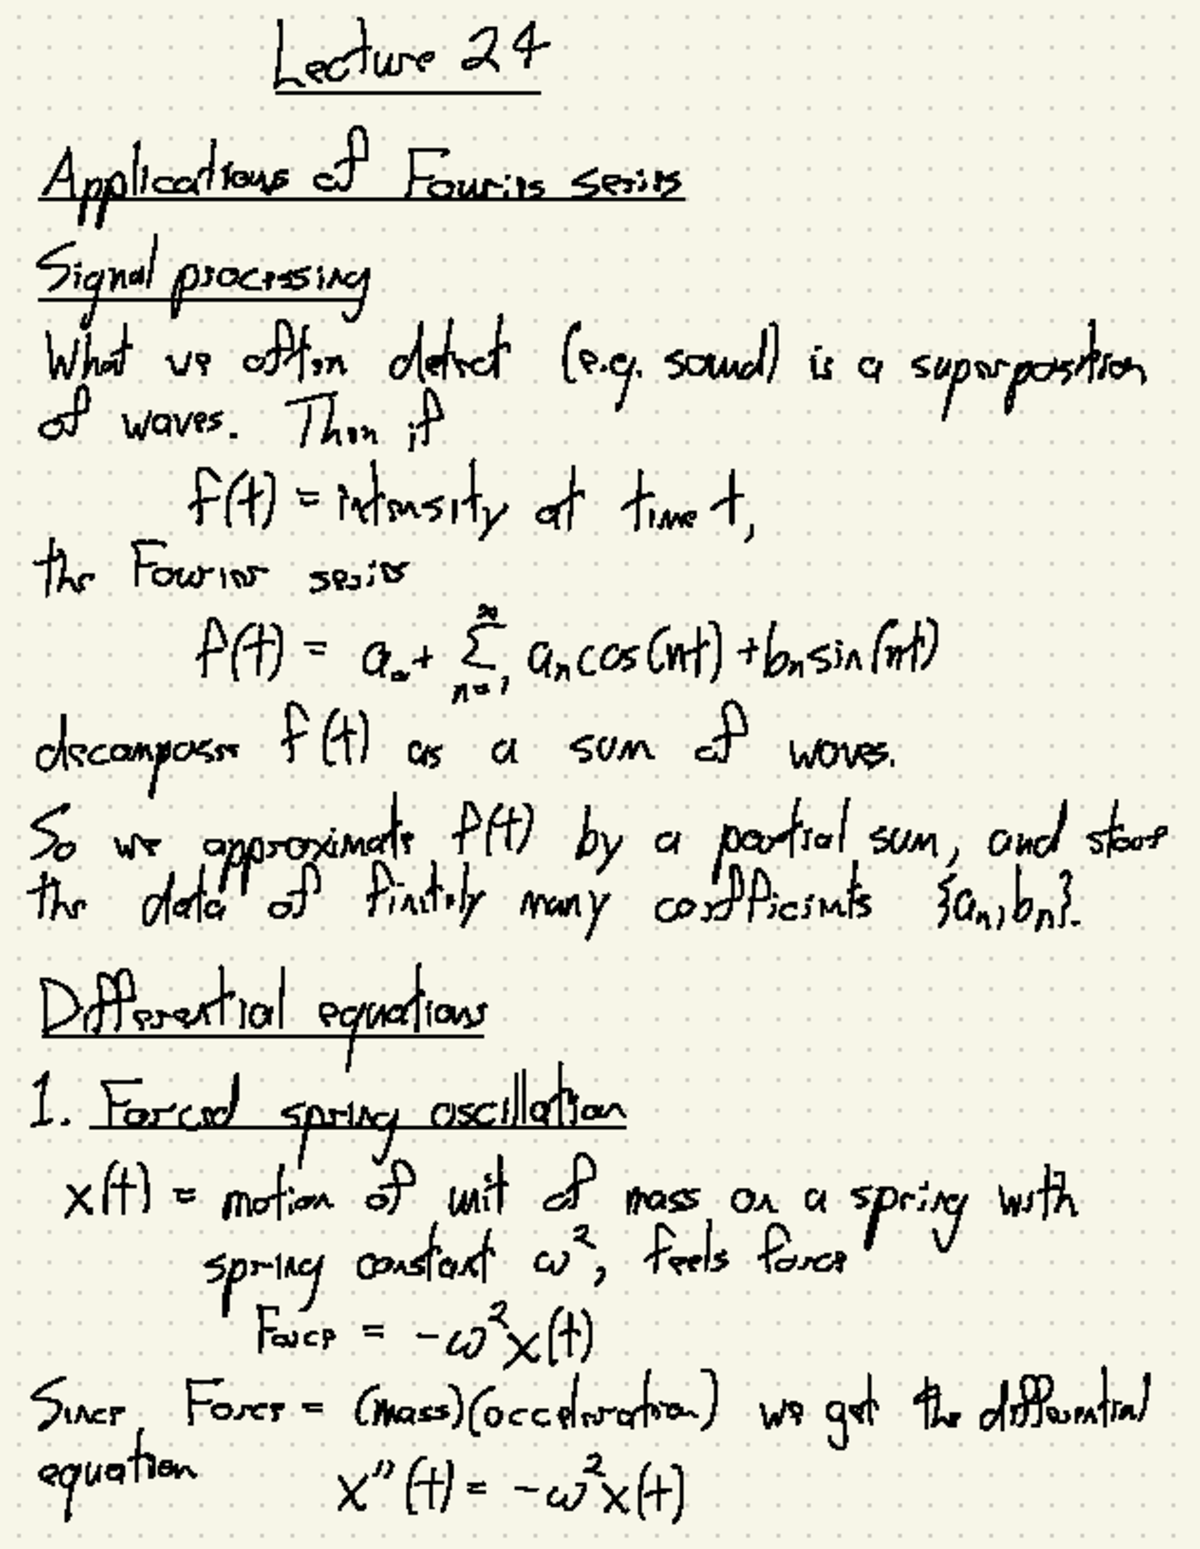 Lecture 24
Applications of Fourier series
Signal processing
What we often detect (e.g. sound) is a superposition
of waves. Then if
f(t) = intensity at time t,
the Fourier series
f(t) = a₀ + ∑_{n=1}^{∞} aₙcos(nt) + bₙsin(nt)
decomposes f(t) as a sum of waves.
So we approximate f(t) by a partial sum, and store
the data of finitely many coefficients {aₙ, bₙ}.
Differential equations
1. Forced spring oscillation
x(t) = motion of unit of mass on a spring with
spring constant ω², feels force
Force = -ω²x(t)
Since Force = (mass)(acceleration) we get the differential
equation
x''(t) = -ω²x(t)